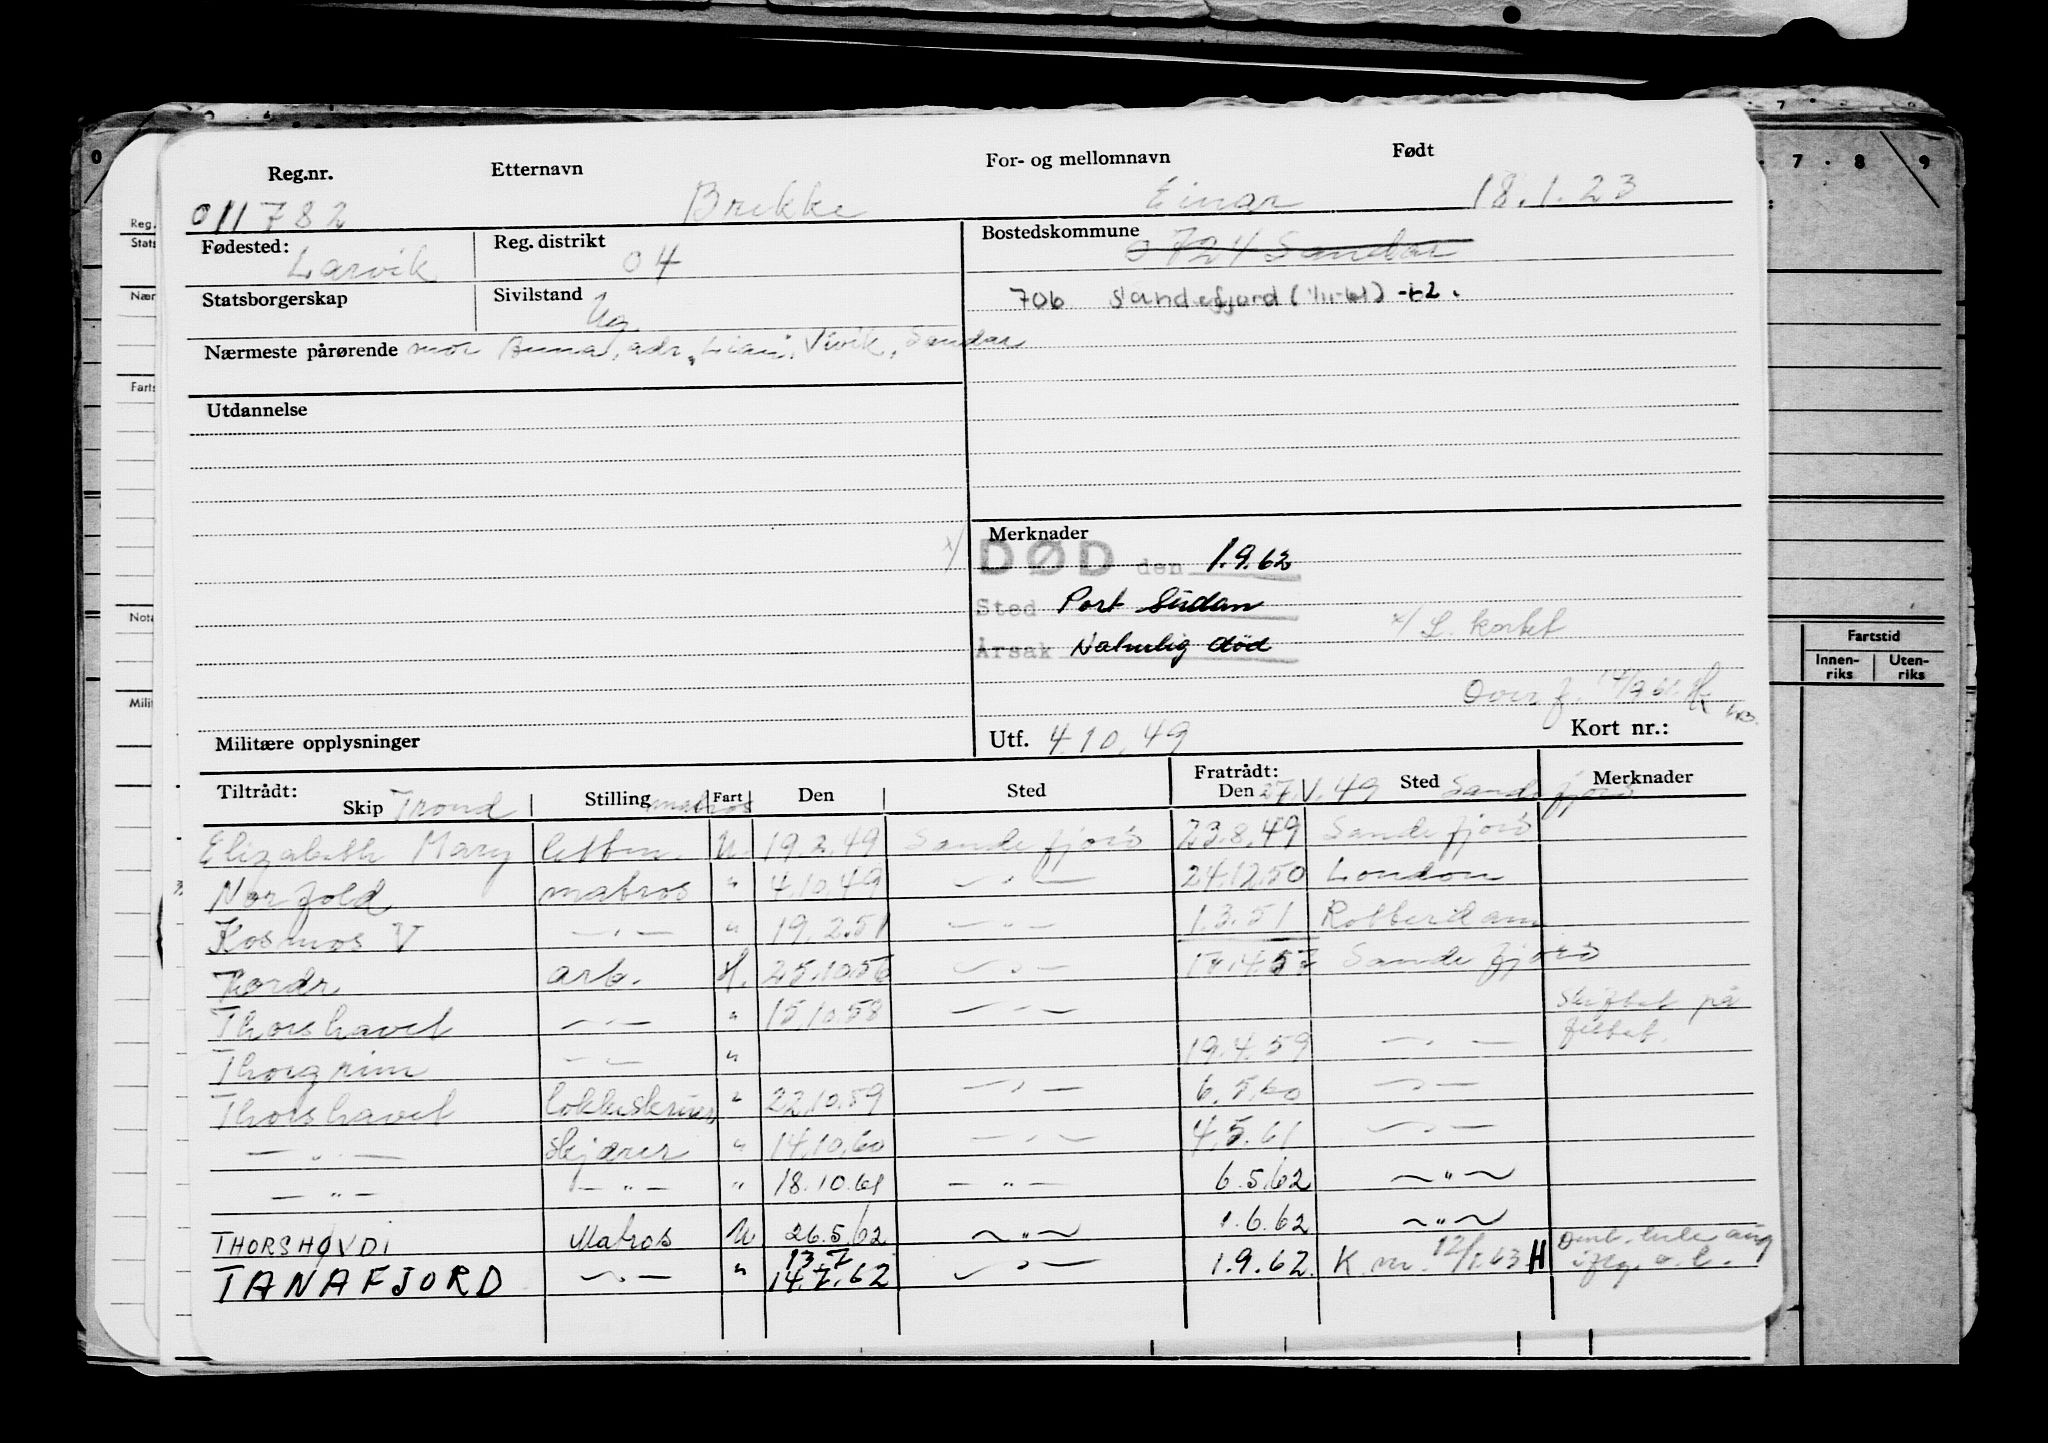 Reg.nr. Etternavn For- og mellomnavn Født
011782 Brekke Einar 18.1.23
Fødested: Larvik Reg. distrikt 04 Bostedskommune 0724 Sandar
Statsborgerskap Sivilstand Ug. 706 Sandefjord (1/11-61) +2.
Nærmeste pårørende mor Anna, adr. Vivik, Sandar
Utdannelse
Merknader
DØD den 1.9.62
Sted Port Sudan
x/ L. kortet
Årsak Naturlig død
Overf.
Militære opplysninger Utf. 4.10.49 Kort nr.:
Tiltrådt: Fratrådt:
Skip Trond Stilling matros Fart Den Sted Den 27.V.49 Sted Sandefjord Merknader
Elizabeth Mary lettm. U. 19.2.49 Sandefjord 23.8.49 Sandefjord
Norfold matros " 4.10.49 — " — 24.12.50 London
Kosmos V — " — " 19.2.51 — " — 1.3.51 Rotterdam
Thordr arb. H. 25.10.56 — " — 17.4.57 Sandefjord
Thorshavet — " — " 15.10.58 — " — Skiftet på
Thorgrim — " — " 19.4.59 — " — feltet.
Thorshavet " 22.10.59 — " — 6.5.60 — " —
— " — skjærer " 14.10.60 — " — 4.5.61 — " —
— " — — " — " 18.10.61 — " — 6.5.62 — " —
THORSHØVDI Matros U 26.5.62 — " — 1.6.62 — " —
13.7
TANAFJORD — " — " 14.7.62 — " — 1.9.62 K. nr. 12/1.63 H
0 7 8 9
Reg.
Stats
Nær
Farts
Nota
Milit
Fartstid
Innen-
riks
Uten-
riks